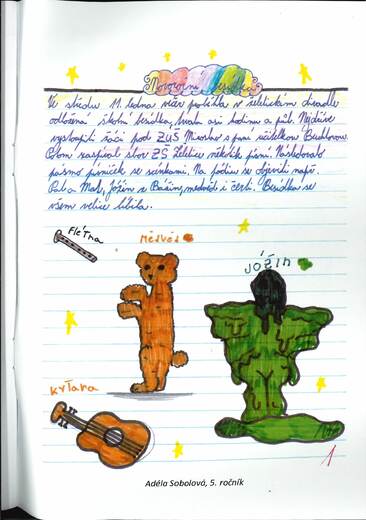 Novoroční besídka
Ve středu 11. ledna večer proběhla v želetickém divadle
odložená školní besídka, trvala asi hodinu a půl. Nejdříve
vystoupili žáci pod ZUŠ Miroslav s paní učitelkou
zazpíval sbor ZŠ Želetice několik písní. Následovalo
pásmo písniček se scénkami. Na pódiu se objevili např.
Pat a Mat, Jožin z Bažin, medvěd i čerti. Besídka se
všem velice líbila.
FLÉTNA
MEDVĚD
JOŽIN
KYTARA
1
Adéla Sobolová, 5. ročník